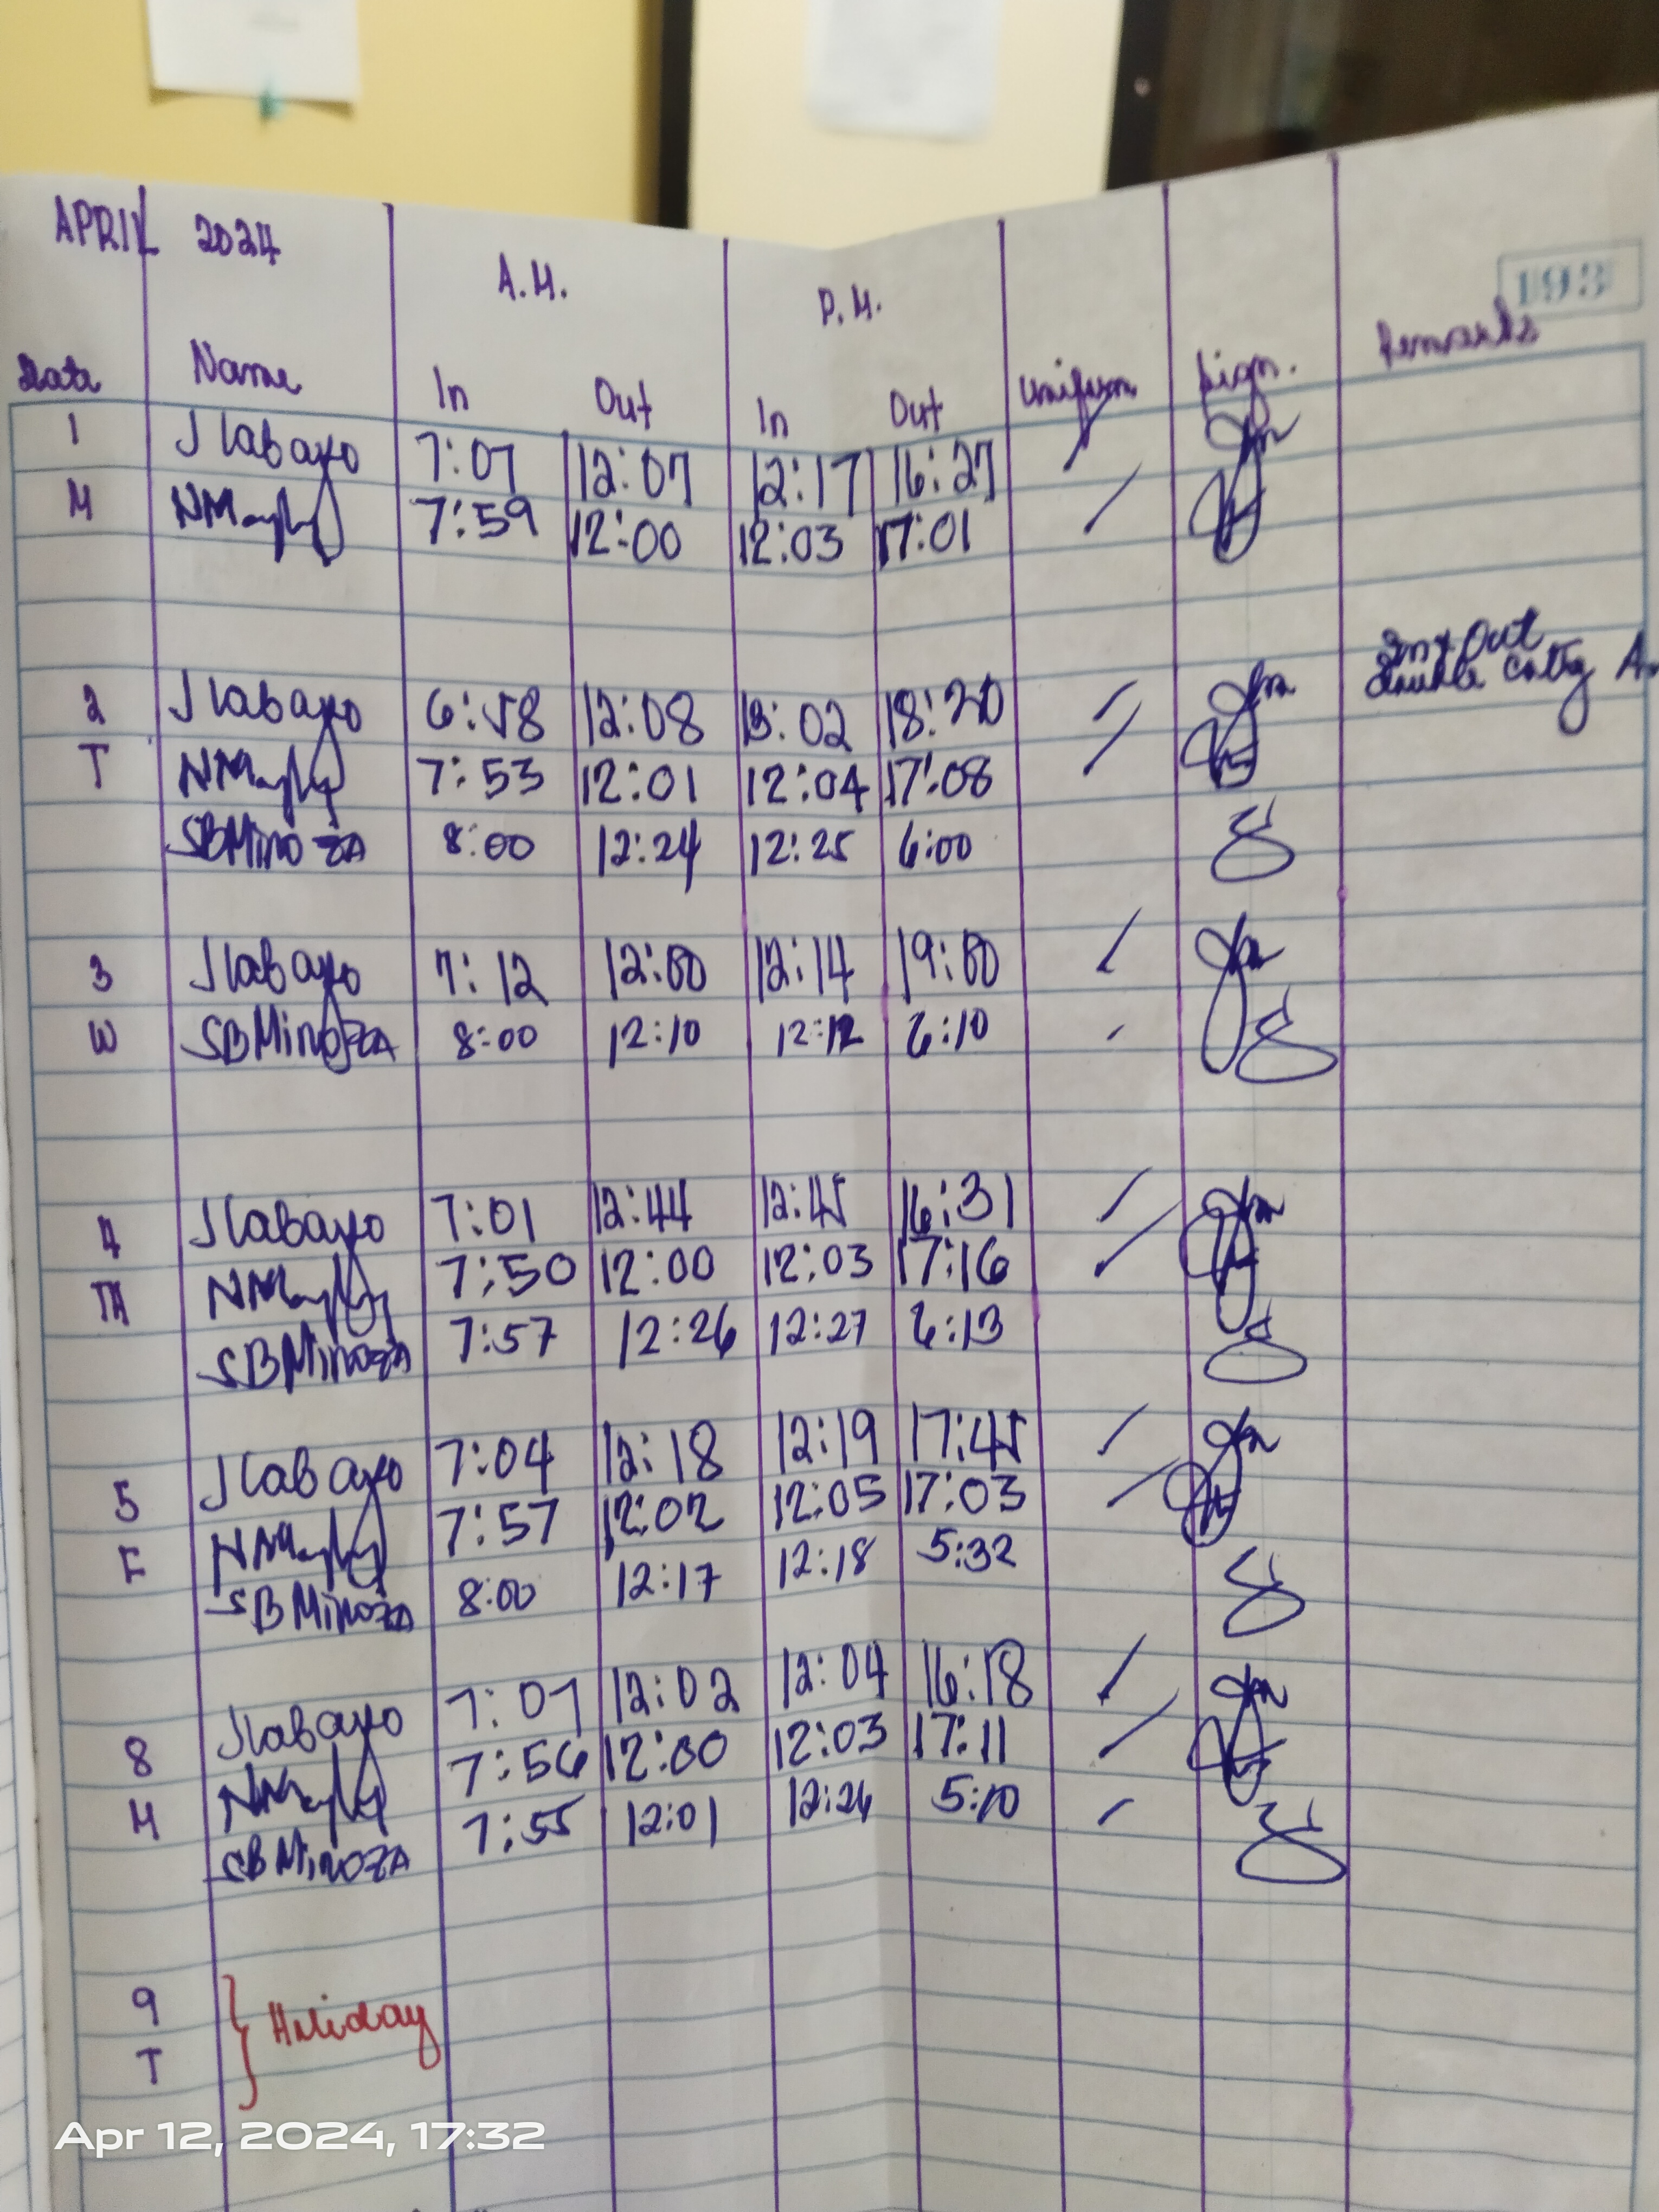 APRIL 2024
193
A.M. P.M.
Date Name In Out In Out Uniform Sign. Remarks
1 JLabayo 7:07 12:07 12:17 16:27
M 7:59 12:00 12:03 17:01
Out
2 JLabayo 6:58 12:08 13:02 18:20
T 7:53 12:01 12:04 17:08
SBMinoza 8:00 12:24 12:25 6:00
3 JLabayo 7:12 12:00 12:14 19:00
W SBMinoza 8:00 12:10 12:12 6:10
4 JLabayo 7:01 12:44 12:45 16:31
TH 7:50 12:00 12:03 17:16
SBMinoza 7:57 12:26 12:27 6:13
JLabayo 7:04 12:18 12:19 17:45
5 7:57 12:02 12:05 17:03
F SBMinoza 8:00 12:17 12:18 5:32
JLabayo 7:07 12:02 12:04 16:18
8 7:56 12:00 12:03 17:11
M SBMinoza 7:55 12:01 12:26 5:10
9 Holiday
T
Apr 12, 2024, 17:32